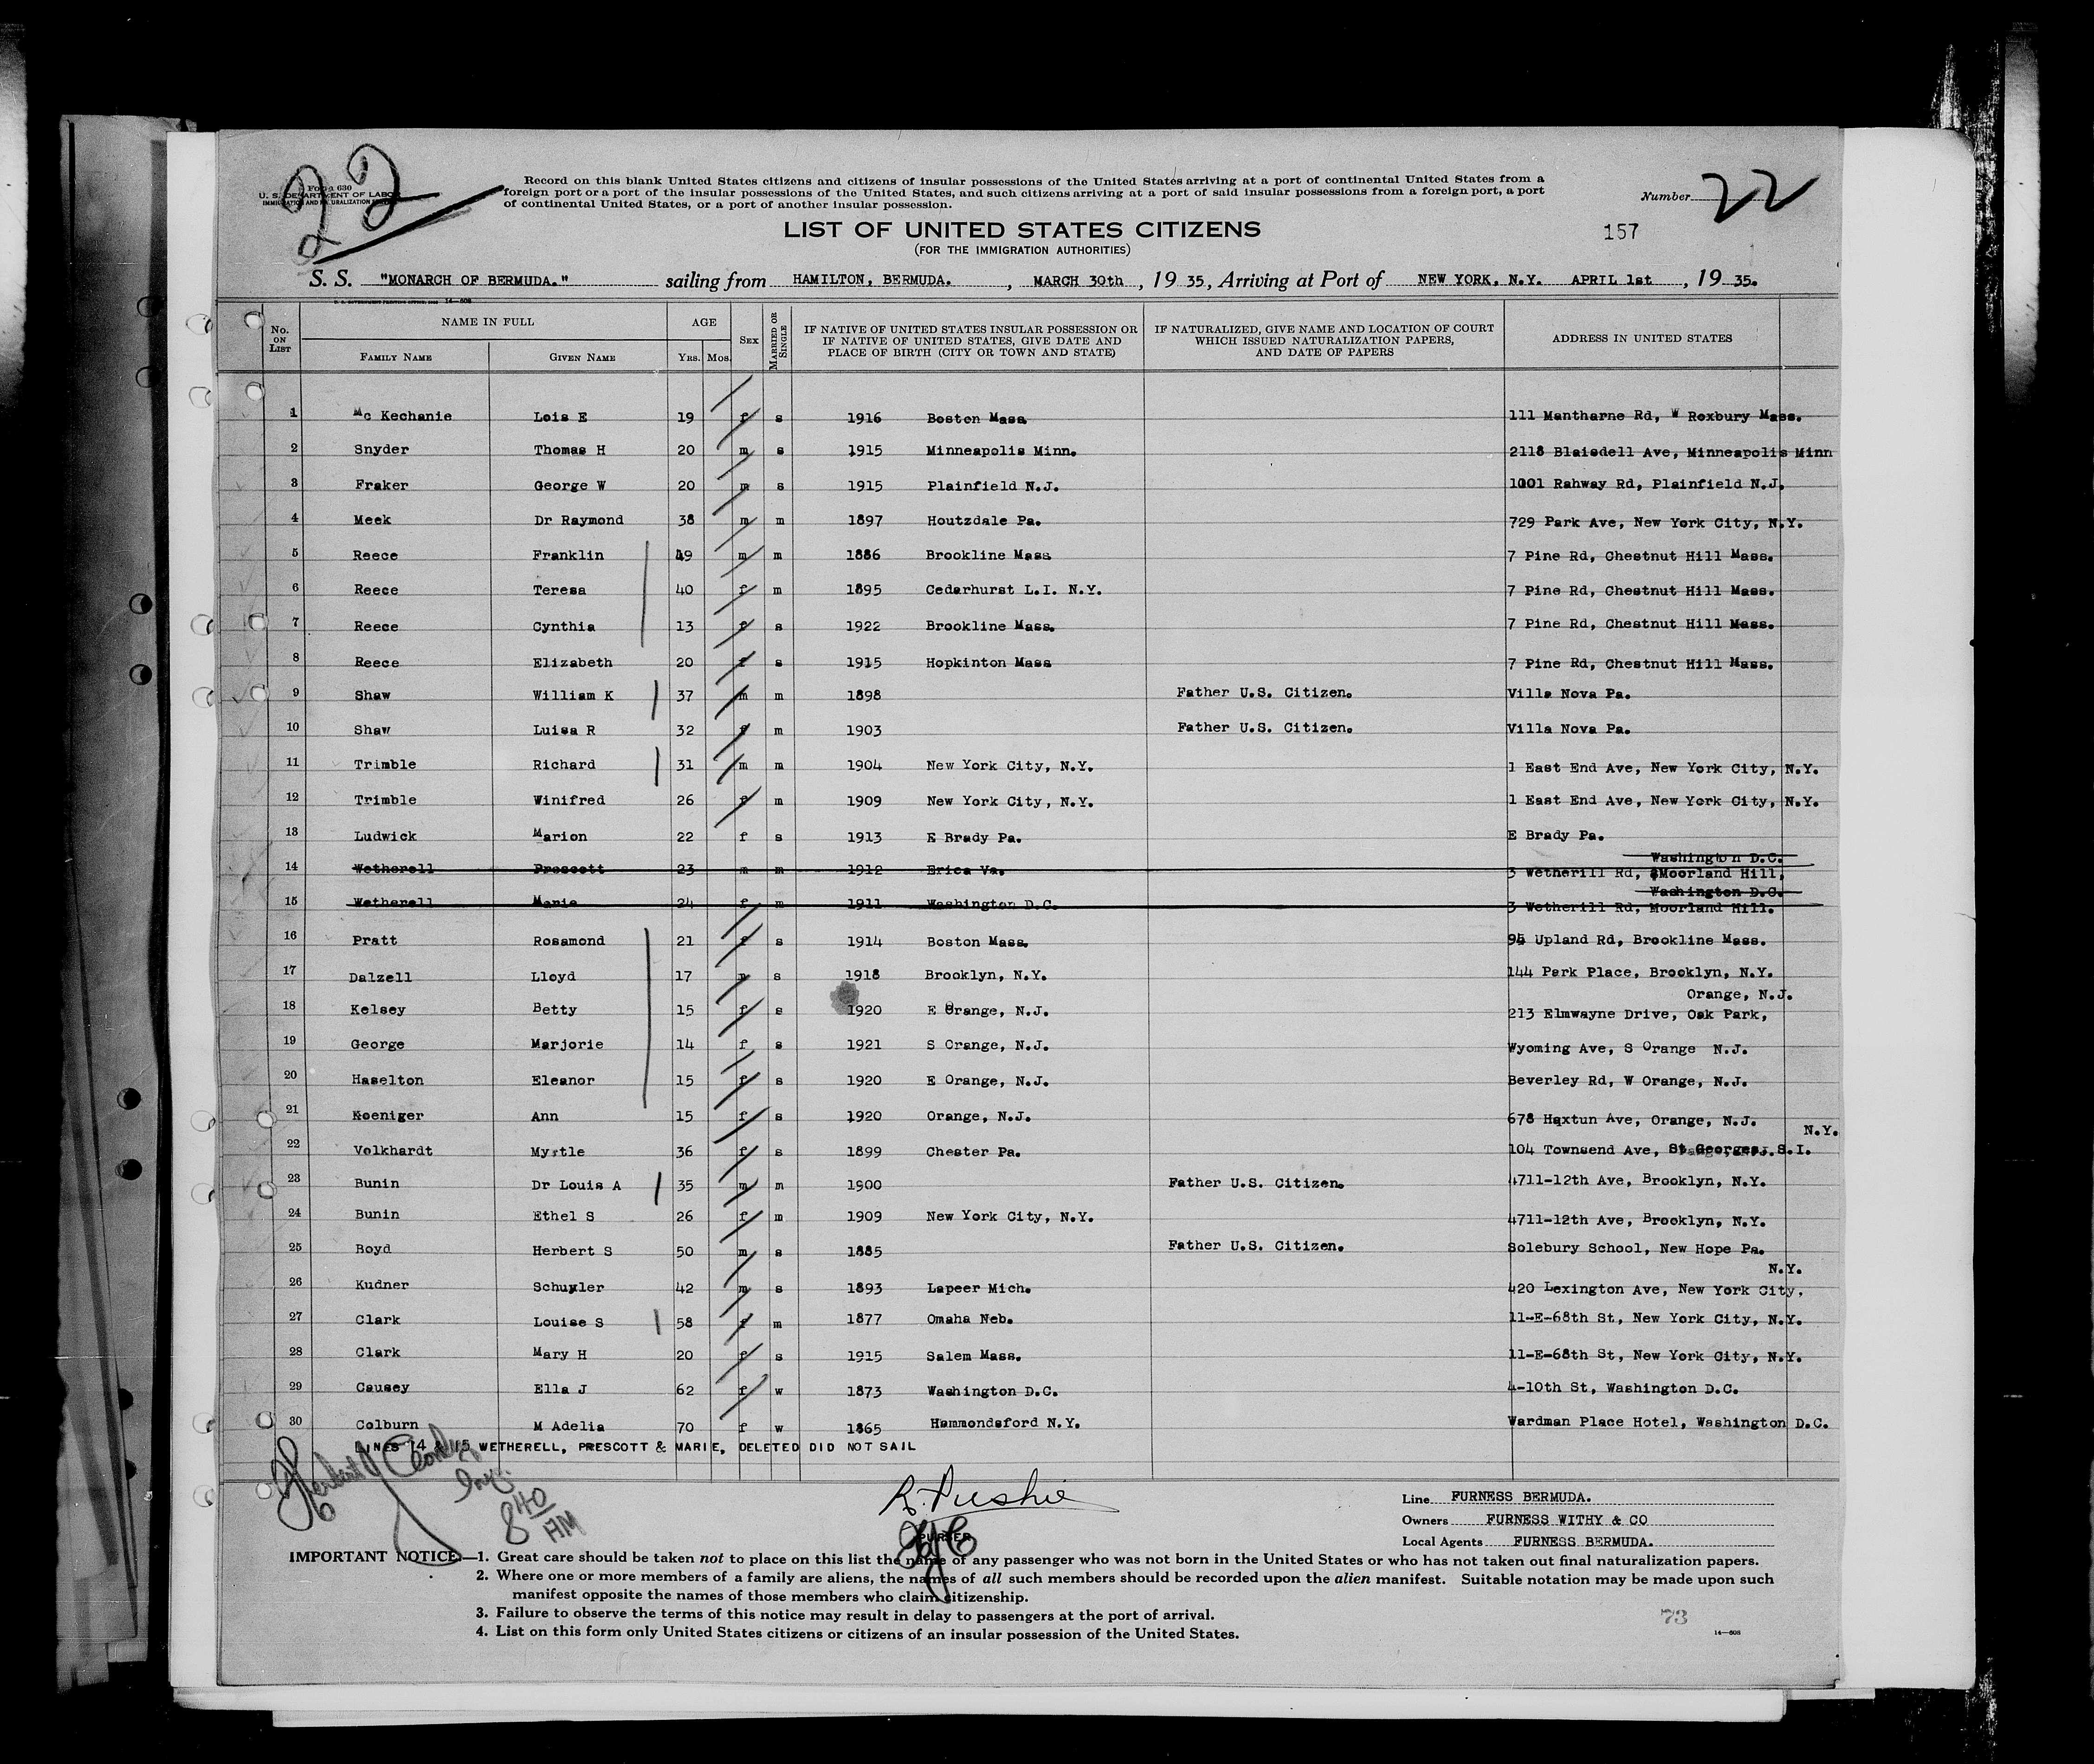 22
Form 630
U. S. DEPARTMENT OF LABOR
IMMIGRATION AND NATURALIZATION
Record on this blank United States citizens and citizens of insular possessions of the United States arriving at a port of continental United States from a
foreign port or a port of the insular possessions of the United States, and such citizens arriving at a port of said insular possessions from a foreign port, a port
of continental United States, or a port of another insular possession.
Number 22
LIST OF UNITED STATES CITIZENS
(FOR THE IMMIGRATION AUTHORITIES)
157
S. S. "MONARCH OF BERMUDA." sailing from HAMILTON, BERMUDA. , MARCH 30th , 19 35, Arriving at Port of NEW YORK, N.Y. APRIL 1st , 19 35.
No. ON LIST NAME IN FULL AGE SEX MARRIED OR SINGLE IF NATIVE OF UNITED STATES INSULAR POSSESSION OR IF NATIVE OF UNITED STATES, GIVE DATE AND PLACE OF BIRTH (CITY OR TOWN AND STATE) IF NATURALIZED, GIVE NAME AND LOCATION OF COURT WHICH ISSUED NATURALIZATION PAPERS, AND DATE OF PAPERS ADDRESS IN UNITED STATES
FAMILY NAME GIVEN NAME YRS. MOS.
1 Mc Kechanie Lois E 19 f s 1916 Boston Mass 111 Mantharne Rd, W Roxbury Mass.
2 Snyder Thomas H 20 m s 1915 Minneapolis Minn. 2118 Blaisdell Ave, Minneapolis Minn
3 Fraker George W 20 m s 1915 Plainfield N.J. 1001 Rahway Rd, Plainfield N.J.
4 Meek Dr Raymond 38 m m 1897 Houtzdale Pa. 729 Park Ave, New York City, N.Y.
5 Reece Franklin 49 m m 1886 Brookline Mass 7 Pine Rd, Chestnut Hill Mass.
6 Reece Teresa 40 f m 1895 Cedarhurst L.I. N.Y. 7 Pine Rd, Chestnut Hill Mass.
7 Reece Cynthia 13 f s 1922 Brookline Mass. 7 Pine Rd, Chestnut Hill Mass.
8 Reece Elizabeth 20 f s 1915 Hopkinton Mass 7 Pine Rd, Chestnut Hill Mass.
9 Shaw William K 37 m m 1898 Father U.S. Citizen. Villa Nova Pa.
10 Shaw Luisa R 32 f m 1903 Father U.S. Citizen. Villa Nova Pa.
11 Trimble Richard 31 m m 1904 New York City, N.Y. 1 East End Ave, New York City, N.Y.
12 Trimble Winifred 26 f m 1909 New York City, N.Y. 1 East End Ave, New York City, N.Y.
13 Ludwick Marion 22 f s 1913 E Brady Pa. E Brady Pa.
Washington D.C.
14 Wetherell Prescott 23 m m 1912 Erica Va. 3 Wetherill Rd, Moorland Hill,
Washington D.C.
15 Wetherell Marie 24 f m 1911 Washington D.C. 3 Wetherill Rd, Moorland Hill.
16 Pratt Rosamond 21 f s 1914 Boston Mass. 95 Upland Rd, Brookline Mass.
17 Dalzell Lloyd 17 m s 1918 Brooklyn, N.Y. 144 Park Place, Brooklyn, N.Y.
Orange, N.J.
18 Kelsey Betty 15 f s 1920 E Orange, N.J. 213 Elmwayne Drive, Oak Park,
19 George Marjorie 14 f s 1921 S Orange, N.J. Wyoming Ave, S Orange N.J.
20 Haselton Eleanor 15 f s 1920 E Orange, N.J. Beverley Rd, W Orange, N.J.
21 Koeniger Ann 15 f s 1920 Orange, N.J. 678 Haxtun Ave, Orange, N.J.
N.Y.
22 Volkhardt Myrtle 36 f s 1899 Chester Pa. 104 Townsend Ave, St Georges, S.I.
23 Bunin Dr Louis A 35 m m 1900 Father U.S. Citizen. 4711-12th Ave, Brooklyn, N.Y.
24 Bunin Ethel S 26 f m 1909 New York City, N.Y. 4711-12th Ave, Brooklyn, N.Y.
25 Boyd Herbert S 50 m s 1885 Father U.S. Citizen. Solebury School, New Hope Pa.
N.Y.
26 Kudner Schuyler 42 m s 1893 Lapeer Mich. 420 Lexington Ave, New York City,
27 Clark Louise S 58 f m 1877 Omaha Neb. 11-E-68th St, New York City, N.Y.
28 Clark Mary H 20 f s 1915 Salem Mass. 11-E-68th St, New York City, N.Y.
29 Causey Ella J 62 f w 1873 Washington D.C. 4-10th St, Washington D.C.
30 Colburn M Adelia 70 f w 1865 Hammondsford N.Y. Wardman Place Hotel, Washington D.C.
LINES 14 & 15 WETHERELL, PRESCOTT & MARIE, DELETED DID NOT SAIL
Herbert
Insp.
8 40 AM
PURSER
Line FURNESS BERMUDA.
Owners FURNESS WITHY & CO
Local Agents FURNESS BERMUDA.
IMPORTANT NOTICE.—1. Great care should be taken not to place on this list the name of any passenger who was not born in the United States or who has not taken out final naturalization papers.
2. Where one or more members of a family are aliens, the names of all such members should be recorded upon the alien manifest. Suitable notation may be made upon such
manifest opposite the names of those members who claim citizenship.
3. Failure to observe the terms of this notice may result in delay to passengers at the port of arrival.
4. List on this form only United States citizens or citizens of an insular possession of the United States.
73
14—608